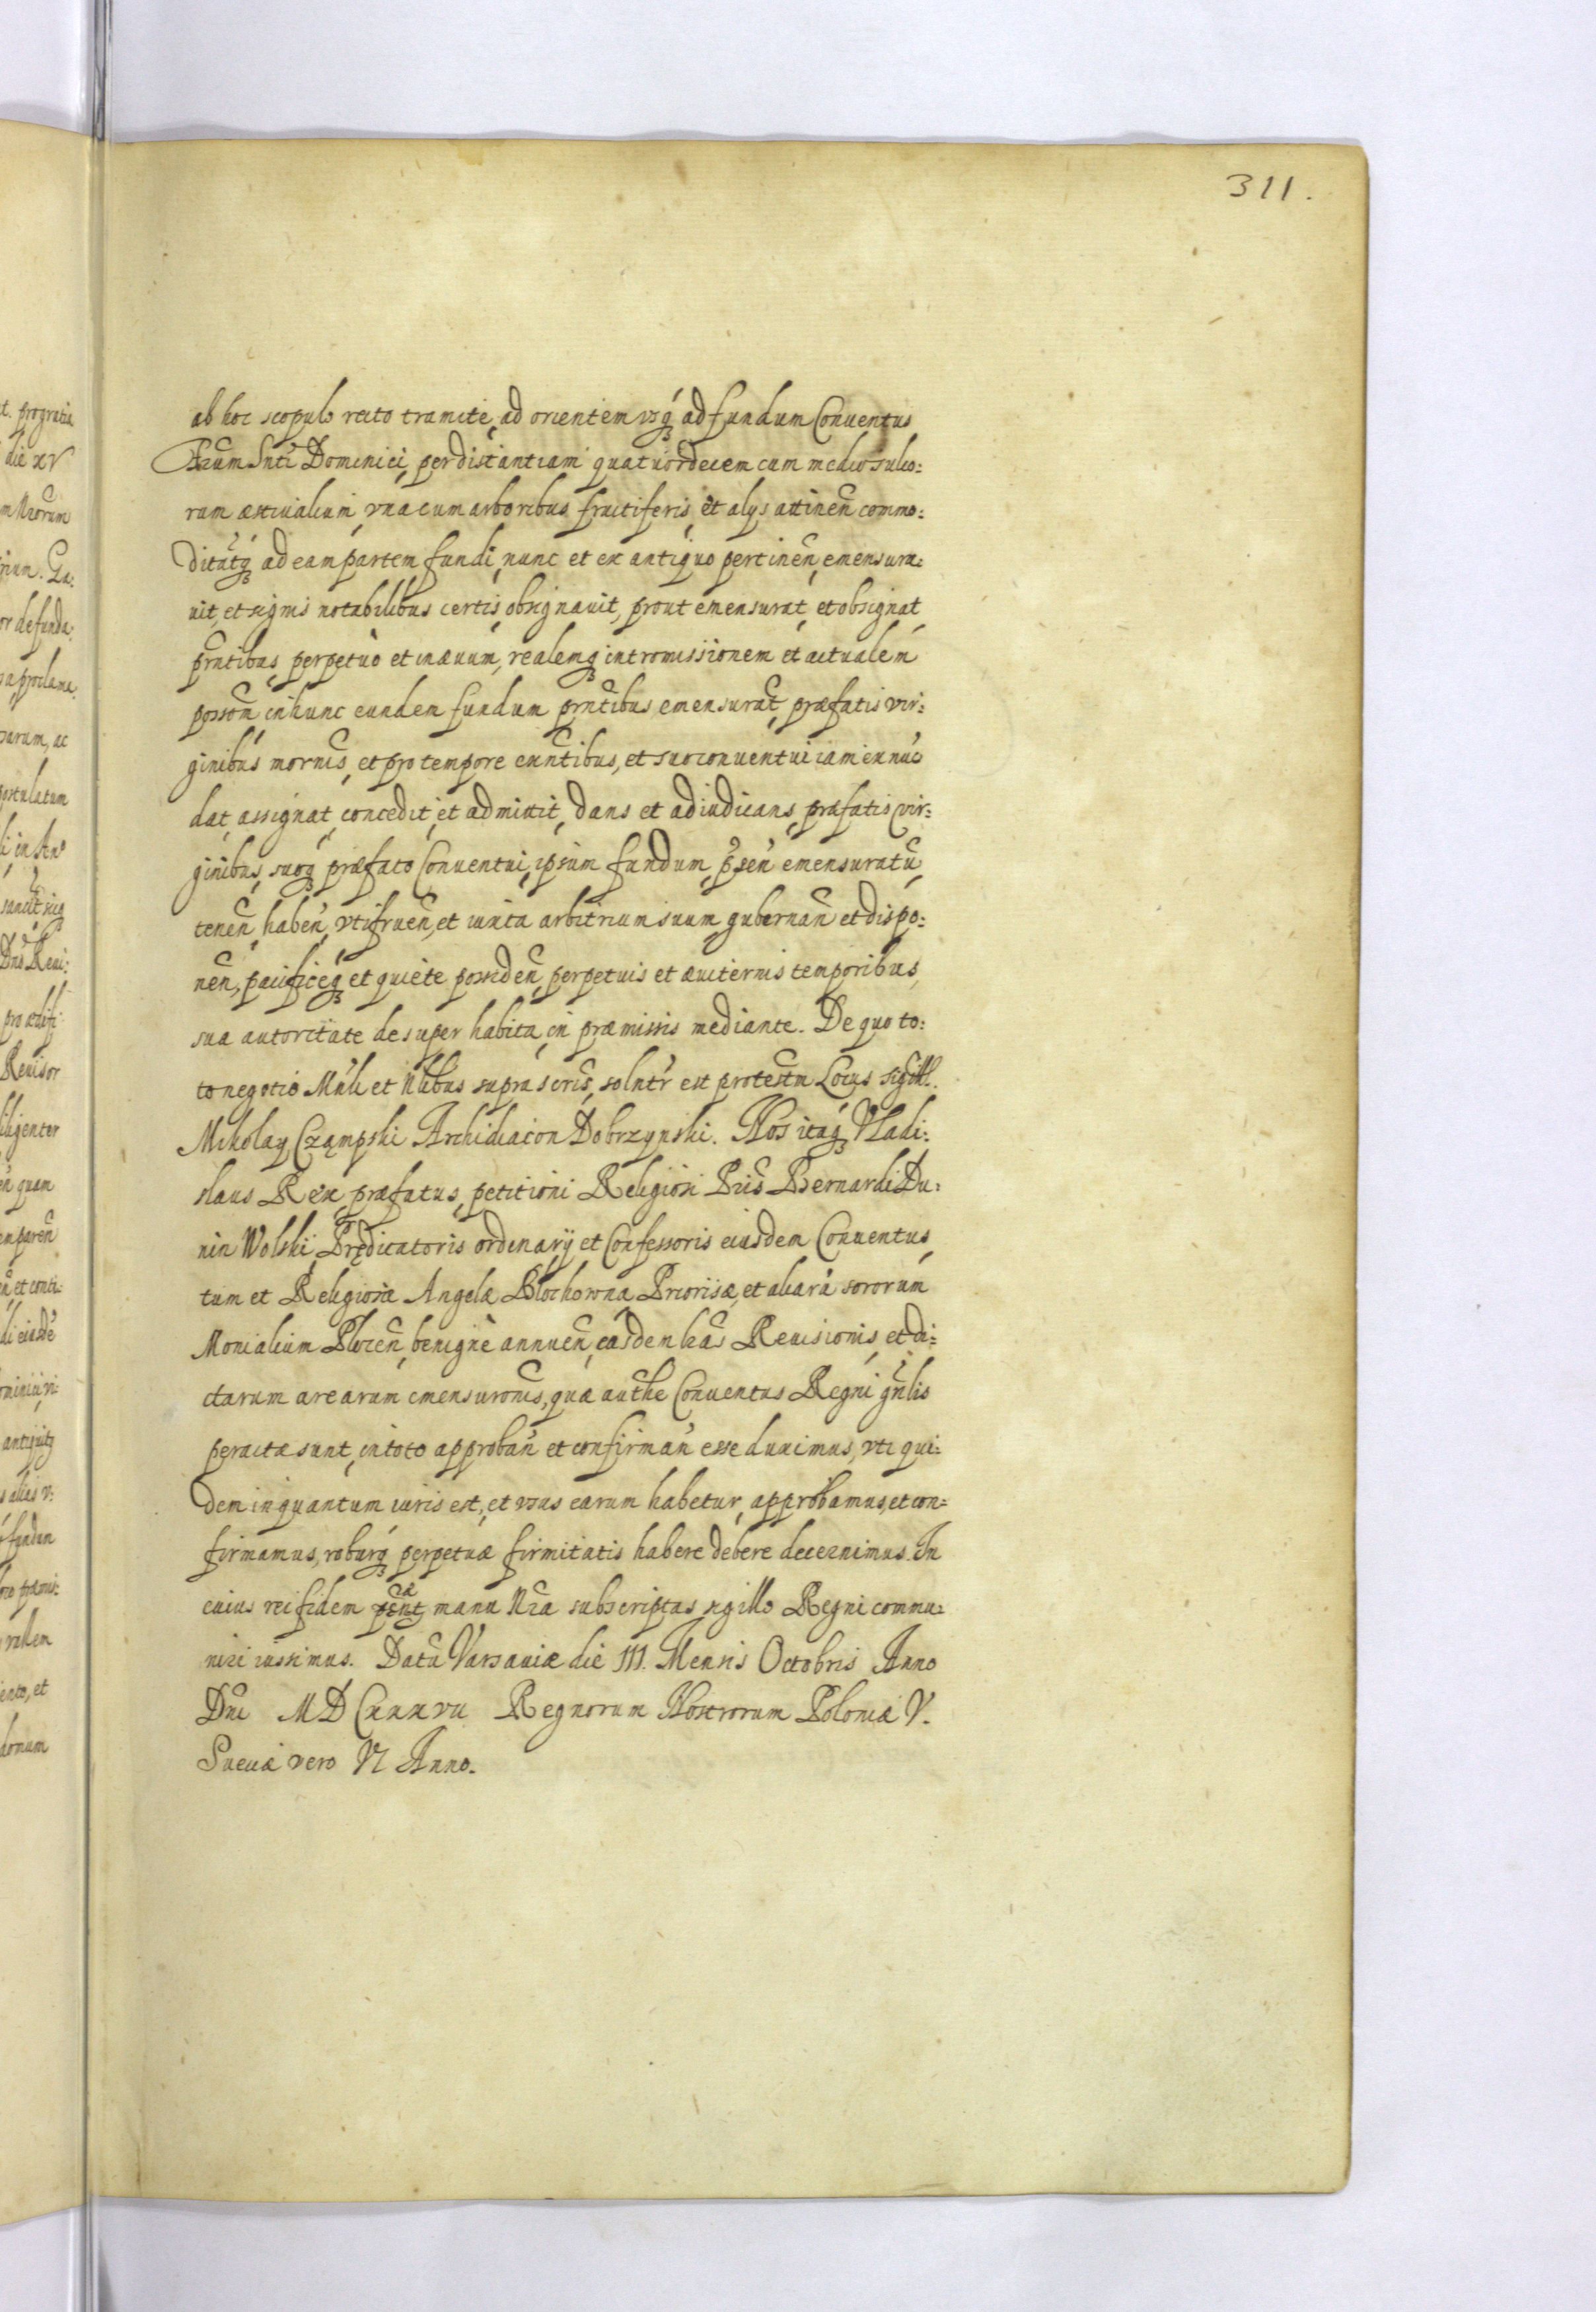 311.
ab hoc scopulo recto tramite, ad orientem vsq́ꝫ ad fundum Conuentus
Prum Snti Dominici, per distantiam quatuordecem cum medio sulco:
rum æstiualium, vna cum arboribus fructiferis, et alys attinen̄ commo:
ditatq́ꝫ ad eam partem fundi, nunc et ex antiquo pertinen̄, emensura:
uit, et signis notabilibus certis, obsignauit, prout emensurat, et obsignat,
pn̄tibus, perpetuò et in æuum, realemqꝫ intromissionem et actualem
posson̄ in hunc eundem fundum pn̄tibus emensurat, præfatis vir:
ginibus mornis, et pro tempore exn̄tibus, et suo conuentui iam ex nuc
dat, assignat, concedit, et admittit, dans et adiudicans, præfatis vir:
ginibus, suoqꝫ præfato Conuentui, ipsum fundum, p̄sen̄ emensuratū,
tenen̄, haben̄, vtifruen̄, et iuxta arbitrium suum gubernan̄ et dispo:
nen̄, pacificeqꝫ et quiète possiden̄, perpetuis et æuiternis temporibus,
sua autoritate desuper habita, in præmissis mediante. De quo to:
to negotio Mn̄li et Nlibus suprascris, solnt̄r est protestm̄ Locus sigill.
Mikolay Cząmpski Archidiacon Dobrzynski. Nos itaq́ꝫ Vladi:
slaus Rex præfatus, petitioni Religiosi Pris Bernardi Du:
nin Wolski, Prędicatoris ordinarÿ et Confessoris eiusdem Conuentus,
tum et Religiosæ Angelæ Blochowna Priorisæ, et aliarū sororum
Monialium Plocen̄, benignè annuen̄, easdem l̄ras Reuisionis, et di:
ctarum arearum emensuronis, quæ authe Conuentus Regni gn̄lis
peractæ sunt, in toto approban̄ et confirman̄ esse duximus, vti qui:
dem in quantum iuris est, et vsus earum habetur, approbamus, et con:
firmamus, roburqꝫ perpetuæ firmitatis habere debere decernimus. In
cuius rei fidem manu Nra subscriptas sigillo Regni commu:
niri iussimus. Datū Varsauiæ die III. Mensis Octobris Anno
Dn̄i MDCxxxvii Regnorum Nostrorum Poloniæ V.
Sueciæ vero VI Anno.